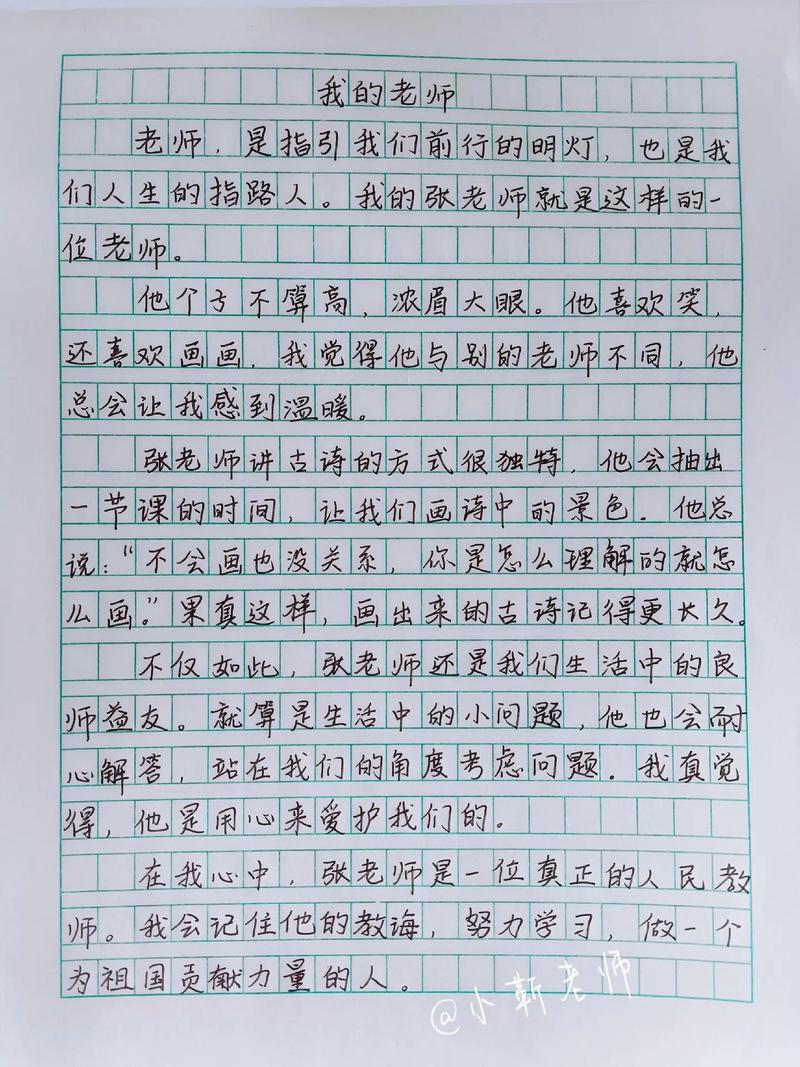 我的老师
老师，是指引我们前行的明灯，也是我
们人生的指路人。我的张老师就是这样的一
位老师。
他个子不算高，浓眉大眼。他喜欢笑，
还喜欢画画．我觉得他与别的老师不同，他
总会让我感到温暖。
张老师讲古诗的方式很独特，他会抽出
一节课的时间，让我们画诗中的景色．他总
说：“不会画也没关系，你是怎么理解的就怎
么画。”果真这样，画出来的古诗记得更长久。
不仅如此，张老师还是我们生活中的良
师益友。就算是生活中的小问题，他也会耐
心解答，站在我们的角度考虑问题．我真觉
得，他是用心来爱护我们的。
在我心中，张老师是一位真正的人民教
师。我会记住他的教诲，努力学习，做一个
为祖国贡献力量的人。
@小靳老师